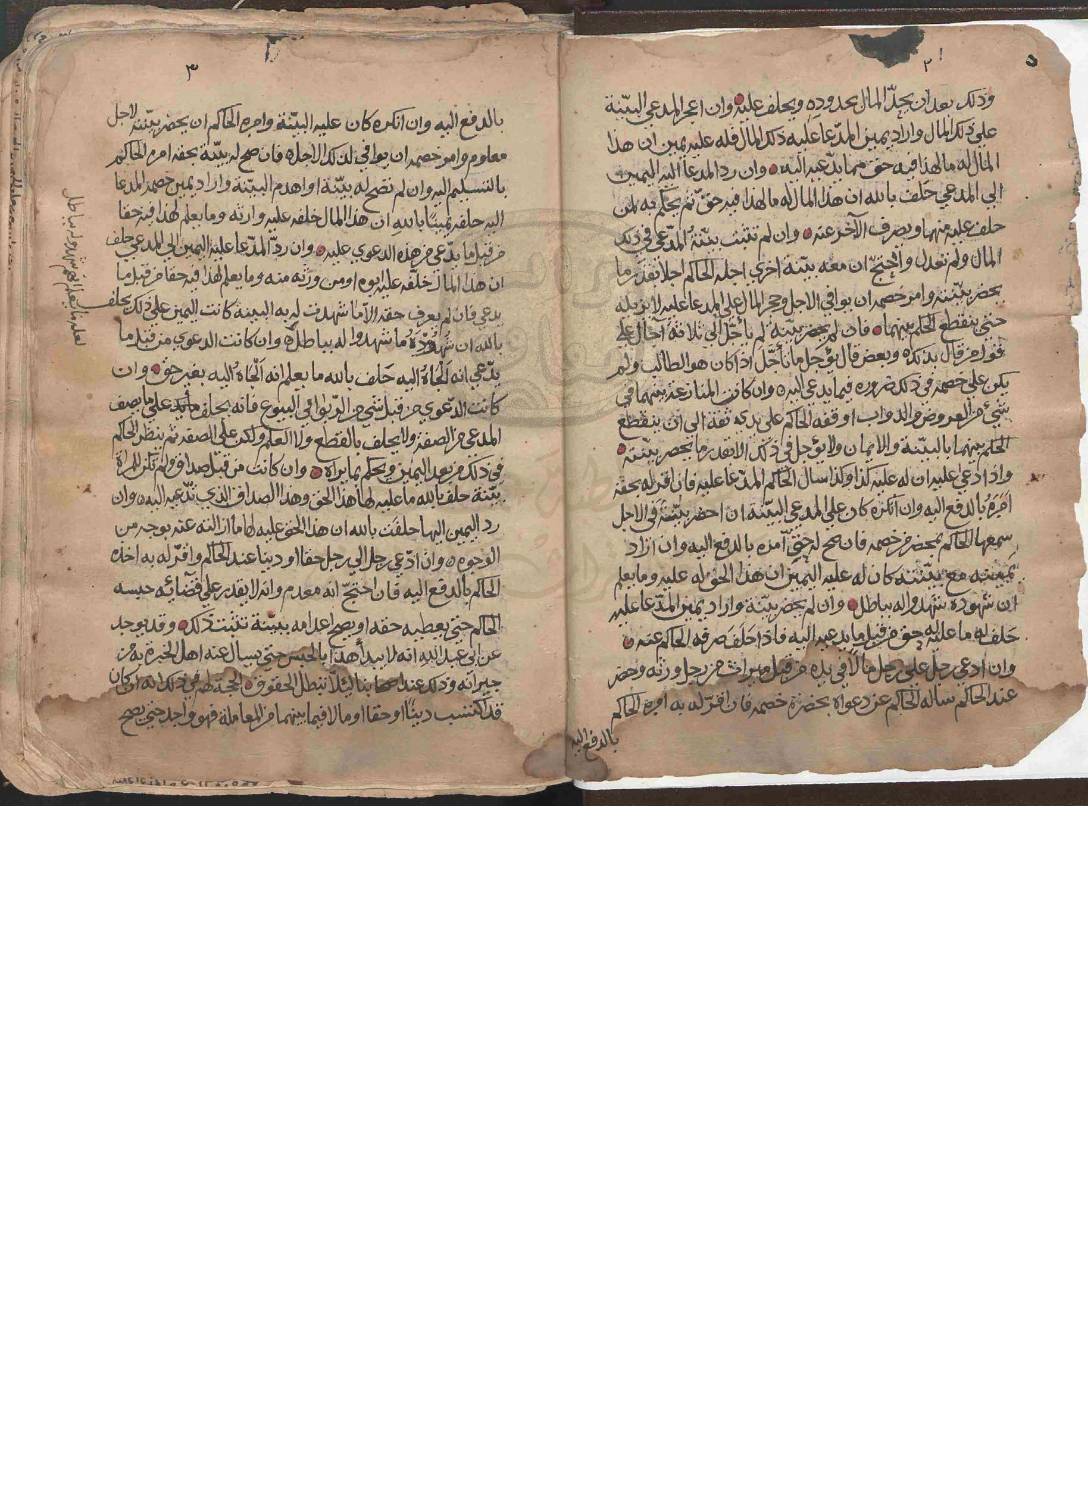 ٢
وذلك بعد ان يحدّ المال بحدوده ويحلف عليه وان اعجز المدعي البيّنة
على ذلك المال واراد يمين المدّعا عليه ذلك المال فله عليه يمين ان هذا
المال له ما لهذا فيه حق مما يدّعيه اليه وان رد المدعا اليه اليمين
الى المدعي حلف بالله ان هذا المال له ما لهذا فيه حقّ ثم يحكم به لمن
حلف عليه منهما ويصرف الآخر عنه وان لم تثبت بيّنة المدّعي في ذلك
المال ولم تعدل واحتجّ ان معه بيّنة اخرى اجله الحاكم اجلا بقدر ما
يحضر بيّنته وامر خصمه ان يوافي الاجل وحجر المال على المدعا عليه لا يزيله
حتى ينقطع الحكم بينهما فان لم يحضر بيّنة لم يأجّل الى ثلاثة آجال على
قول من قال بذلك وبعض قال يؤجل ما تأجّل اذا كان هو الطالب ولم
يكن على خصمه في ذلك ضرورة فيما يدعي اليه وان كانت المنازعة بينهما في
شيء من العروض والدواب اوقفه الحاكم على يدي ثقة الى ان ينقطع
الحكم بينهما بالبيّنة والايمان ولا يؤجل في ذلك الا بقدر ما يحضر بيّنته
واذا دعى عليه ان له عليه كذا وكذا سال الحاكم المدّعا عليه فان اقر له بحقه
امره بالدفع اليه وان انكره كان على المدعي البيّنة ان احضر بيّنة في الاجل
سمعها الحاكم بمحضر من خصمه فان صح له حقّ آمره بالدفع اليه وان اراد
يمينه مع بيّنته كان له عليه اليمين ان هذا الحق له عليه وما يعلم
ان شهوده شهدوا له بباطل وان لم يحضر بيّنة واراد يمين المدّعا عليه
حلف له ما عليه حق من قبل ما يدعيه اليه فاذا حلف صرفه الحاكم عنه
وان ادعى رجل على رجل مالا في يده من قبل ميراث من رجل ورثه وحضر
عند الحاكم ساله الحاكم عن دعواه بحضرة خصمه فان اقرّ له به امره الحاكم
بالدفع اليه
٣
بالدفع اليه وان انكره كان عليه البيّنة وامره الحاكم ان يحضر بيّنته لاجل
معلوم وامر خصمه ان يوافي لذلك الاجل فان صح له بيّنة بحقه امره الحاكم
بالتسليم اليه وان لم تصح له بيّنة او اهدم البيّنة واراد يمين خصمه المدعا
اليه حلفه يمينًا بالله ان هذا المال خلفه عليه وارثه وما يعلم لهذا فيه حقا
من قبل ما يدّعي من هذه الدعوى عليه وان ردّ المدّعا عليه اليمين الى المدعي حلف
ان هذا المال خلّفه عليه ابوه او من ورثه منه وما يعلم لهذا فيه حقا من قبل ما
يدعي فان لم يعرف حقه الا ما شهدت له به البينة كانت اليمين على ذلك يحلف
بالله ان شهوده ما شهدوا له بباطل وان كانت الدعوى من قبل ما
يدّعي انه الجاه اليه حلف بالله ما يعلم انه الجاه اليه بغير حق وان
كانت الدّعوى من قبل شيء من الرّبوا في البيوع فانه يحلف على ما يصف
المدعي من الصفة ولا يحلف بالقطع ولا العلم ولكن على الصفة ثم ينظر الحاكم
في ذلك من بعد اليمين ويحكم بما يراه وان كانت من قبل صداق ولم تكن للمرأة
بيّنة حلف بالله ما عليه لها هذا الحق وهذا الصداق الذي تدّعيه اليه وان
رد اليمين اليها حلفت بالله ان هذا الحق عليه لها ما ازالته عنه بوجه من
الوجوه وان ادّعى رجل الى رجل حقا او دينا عند الحاكم واقرّ له به اخذه
الحاكم بالدفع اليه فان احتجّ انه معدم وانه لا يقدر على قضائه حبسه
الحاكم حتى يعطيه حقه او يصح اعدامه ببيّنة تثبت ذلك وقد يوجد
عن ابي عبد الله انه لا يبدأ هذا بالحبس حتى يسال عنه اهل الخبرة به من
جيرانه وذلك عند اصحابنا لئلا تبطل الحقوق والحجة لهم في ذلك انه ان كان
قد اكتسب دينًا او حقا او مالا فيما بينهما من المعاملة فهو واجد حتى يصح
لعله ما يعلم انهم شهدوا له بباطل